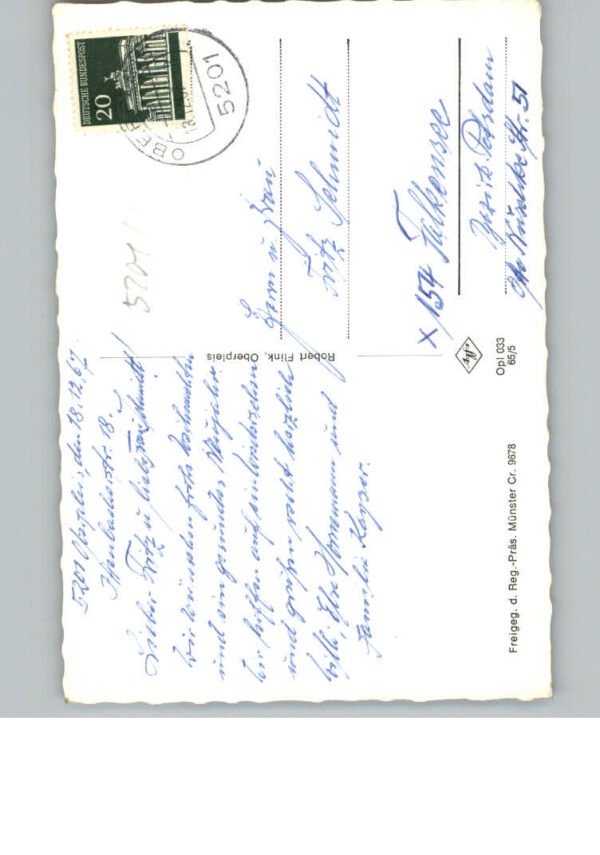 5201 Oberpleis, den 18.12.67.
str. 18.
Lieber Fritz u. liebe Frau Schmidt!
Wir wünschen frohe Weihnachten
und ein gesundes Neujahr.
Wir hoffen auf ein Wiedersehen
und grüßen recht herzlich
Willi, Else Hornmann und
Familie Kayser.
Robert Flink, Oberpleis
DEUTSCHE BUNDESPOST
20
5201
5201
Herrn u. Frau
Fritz Schmidt
X 154 Falkensee
Bezirk Potsdam
Str. 51
Opl 033
65/5
Freigeg. d. Reg.-Präs. Münster Cr. 9678